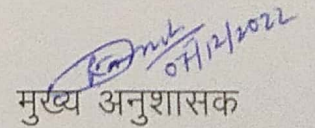 07/12/2022
मुख्य अनुशासक